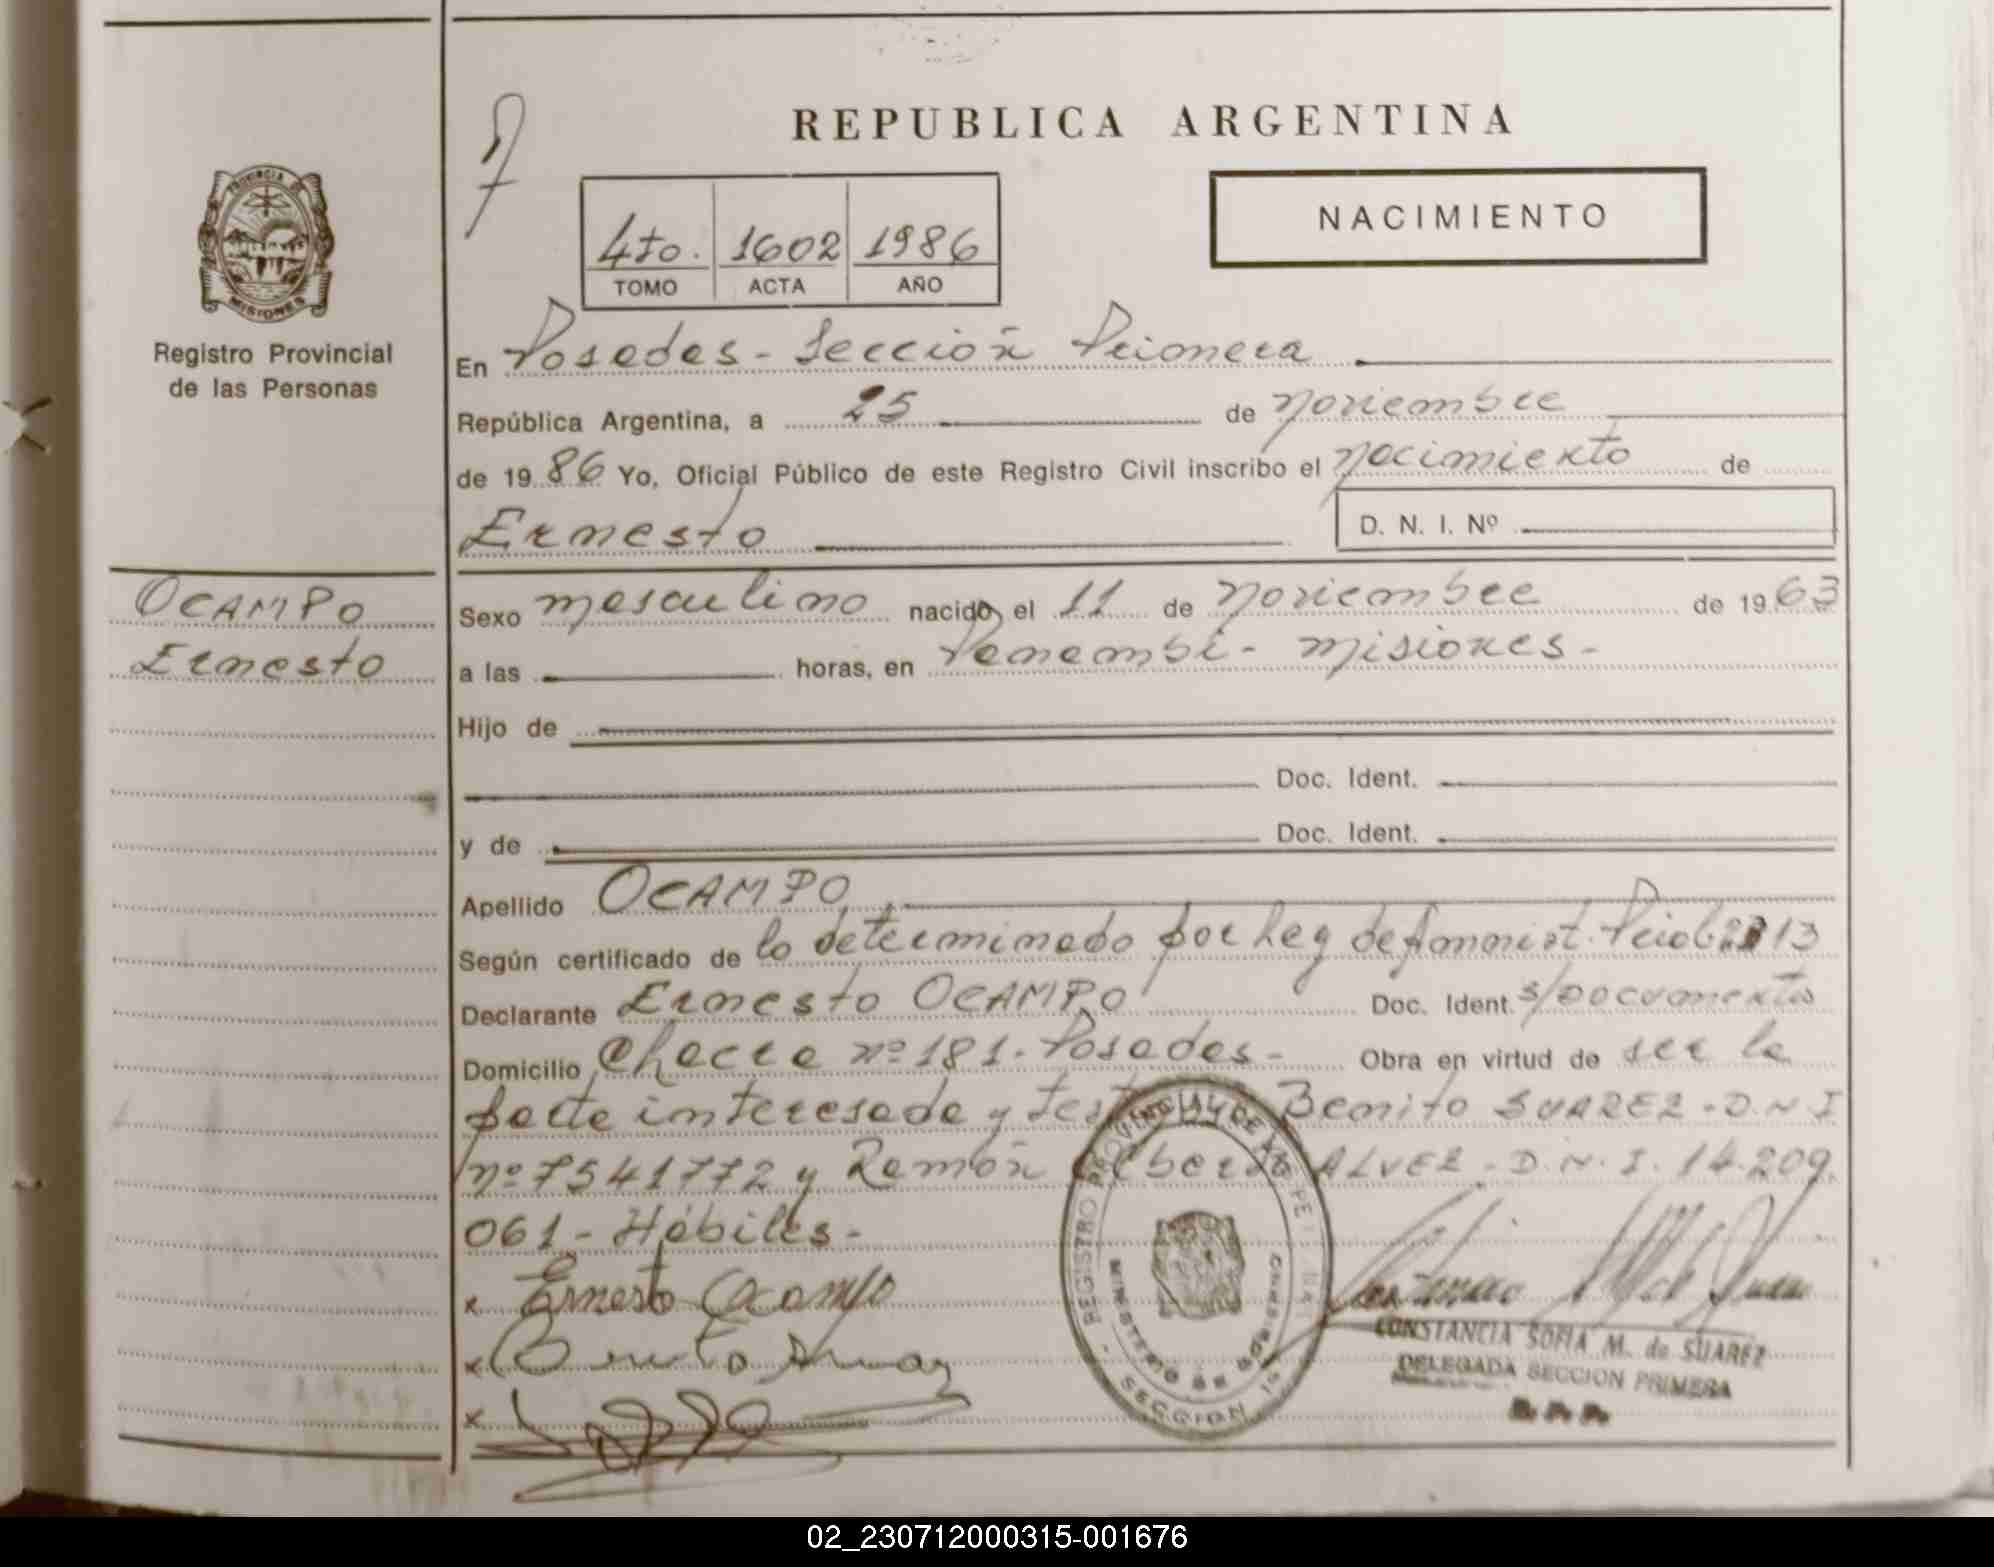 REPUBLICA ARGENTINA
NACIMIENTO
4to. 1602 1986
TOMO ACTA AÑO
PROVINCIA DE
MISIONES
Registro Provincial
de las Personas
En Posadas - Sección Primera
República Argentina, a 25 de noviembre
de 19 86 Yo, Oficial Público de este Registro Civil inscribo el nacimiento de
Ernesto D. N. I. Nº
OCAMPO
Ernesto
Sexo masculino nacido el 11 de noviembre de 19 63
a las horas, en Panambí - Misiones -
Hijo de
Doc. Ident.
y de Doc. Ident.
Apellido OCAMPO
Según certificado de lo determinado por Ley
Declarante Ernesto OCAMPO Doc. Ident. s/Documento
Domicilio Chacra nº 181 - Posadas - Obra en virtud de ser la
parte interesada y Benito SUAREZ - D.N.I
nº 7541772 y Ramón ALVEZ - D.N.I. 14.209.
061 - Hábiles -
x Ernesto Ocampo
x Benito Suarez
x
REGISTRO PROVINCIAL DE LAS PERSONAS
MINISTERIO DE GOBIERNO
SECCION 1ª
CONSTANCIA SOFIA M. de SUAREZ
DELEGADA SECCION PRIMERA
R. P. P.
02_230712000315-001676